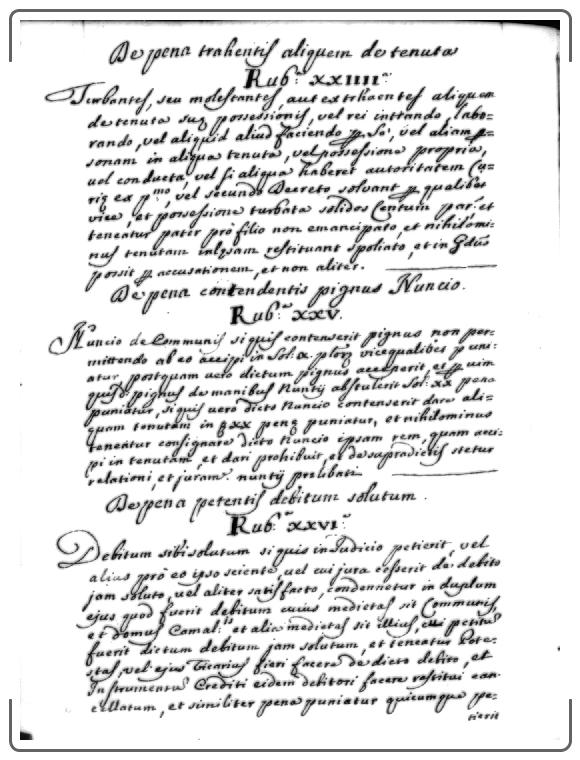 De pena trahentis aliquem de tenuta
Rub.ª XXIIII.ª
Turbantes, seu molestantes, aut extrhaentes aliquem
de tenuta suę possessionis, vel rei intrando, labo=
rando, vel aliquid aliud faciendo p se, vel aliam p=
sonam in aliqua tenuta, vel possessione propria,
vel conducta, vel si aliqua haberet autoritatem Cu=
rię ex p.mo, vel secundo Decreto solvant p qualibet
vice, et possessione turbata solidos Centum par: et
teneatur pater pro filio non emancipato, et nihilomi=
nus tenutam inlęsam restituant spoliato, et in
possit p accusationem, et non aliter.
De pena contendentis pignus Nuncio.
Rub.ª XXV.
Nuncio de Communis si quis contenserit pignus non per=
mittendo ab eo accipi in Sol: X vice qualibet puni=
atur, postquam vero dictum pignus acceperit, et p vim
quis d: pignus de manibus Nuntij abstulerit Sol: XX pena
puniatur, si quis vero dicto Nuncio contenserit dare ali=
quam tenutam in XX penę puniatur, et nihilominus
teneatur consignare dicto Nuncio ipsam rem, quam acci=
pi in tenutam, et dari prohibuit, et de supradictis stetur
relationi, et juram: nuntij prelibati
De pena petentis debitum solutum.
Rub.ª XXVI.ª
Debitum sibi solutum si quis in Judicio petierit, vel
alius pro eo ipso sciente, vel cui jura cesserit de debito
jam soluto, vel aliter satisfacto, condennetur in duplum
ejus quod fuerit debitum cuius medietas sit Communis,
et domus Camal:is et alia medietas sit illius, cui petitu
fuerit dictum debitum jam solutum, et teneatur Pote=
stas, vel ejus Vicarius fieri facere de dicto debito, et
Instrumentu Crediti eidem debitori facere restitui can=
cellatum, et similiter pena puniatur quicumque pe=
tierit